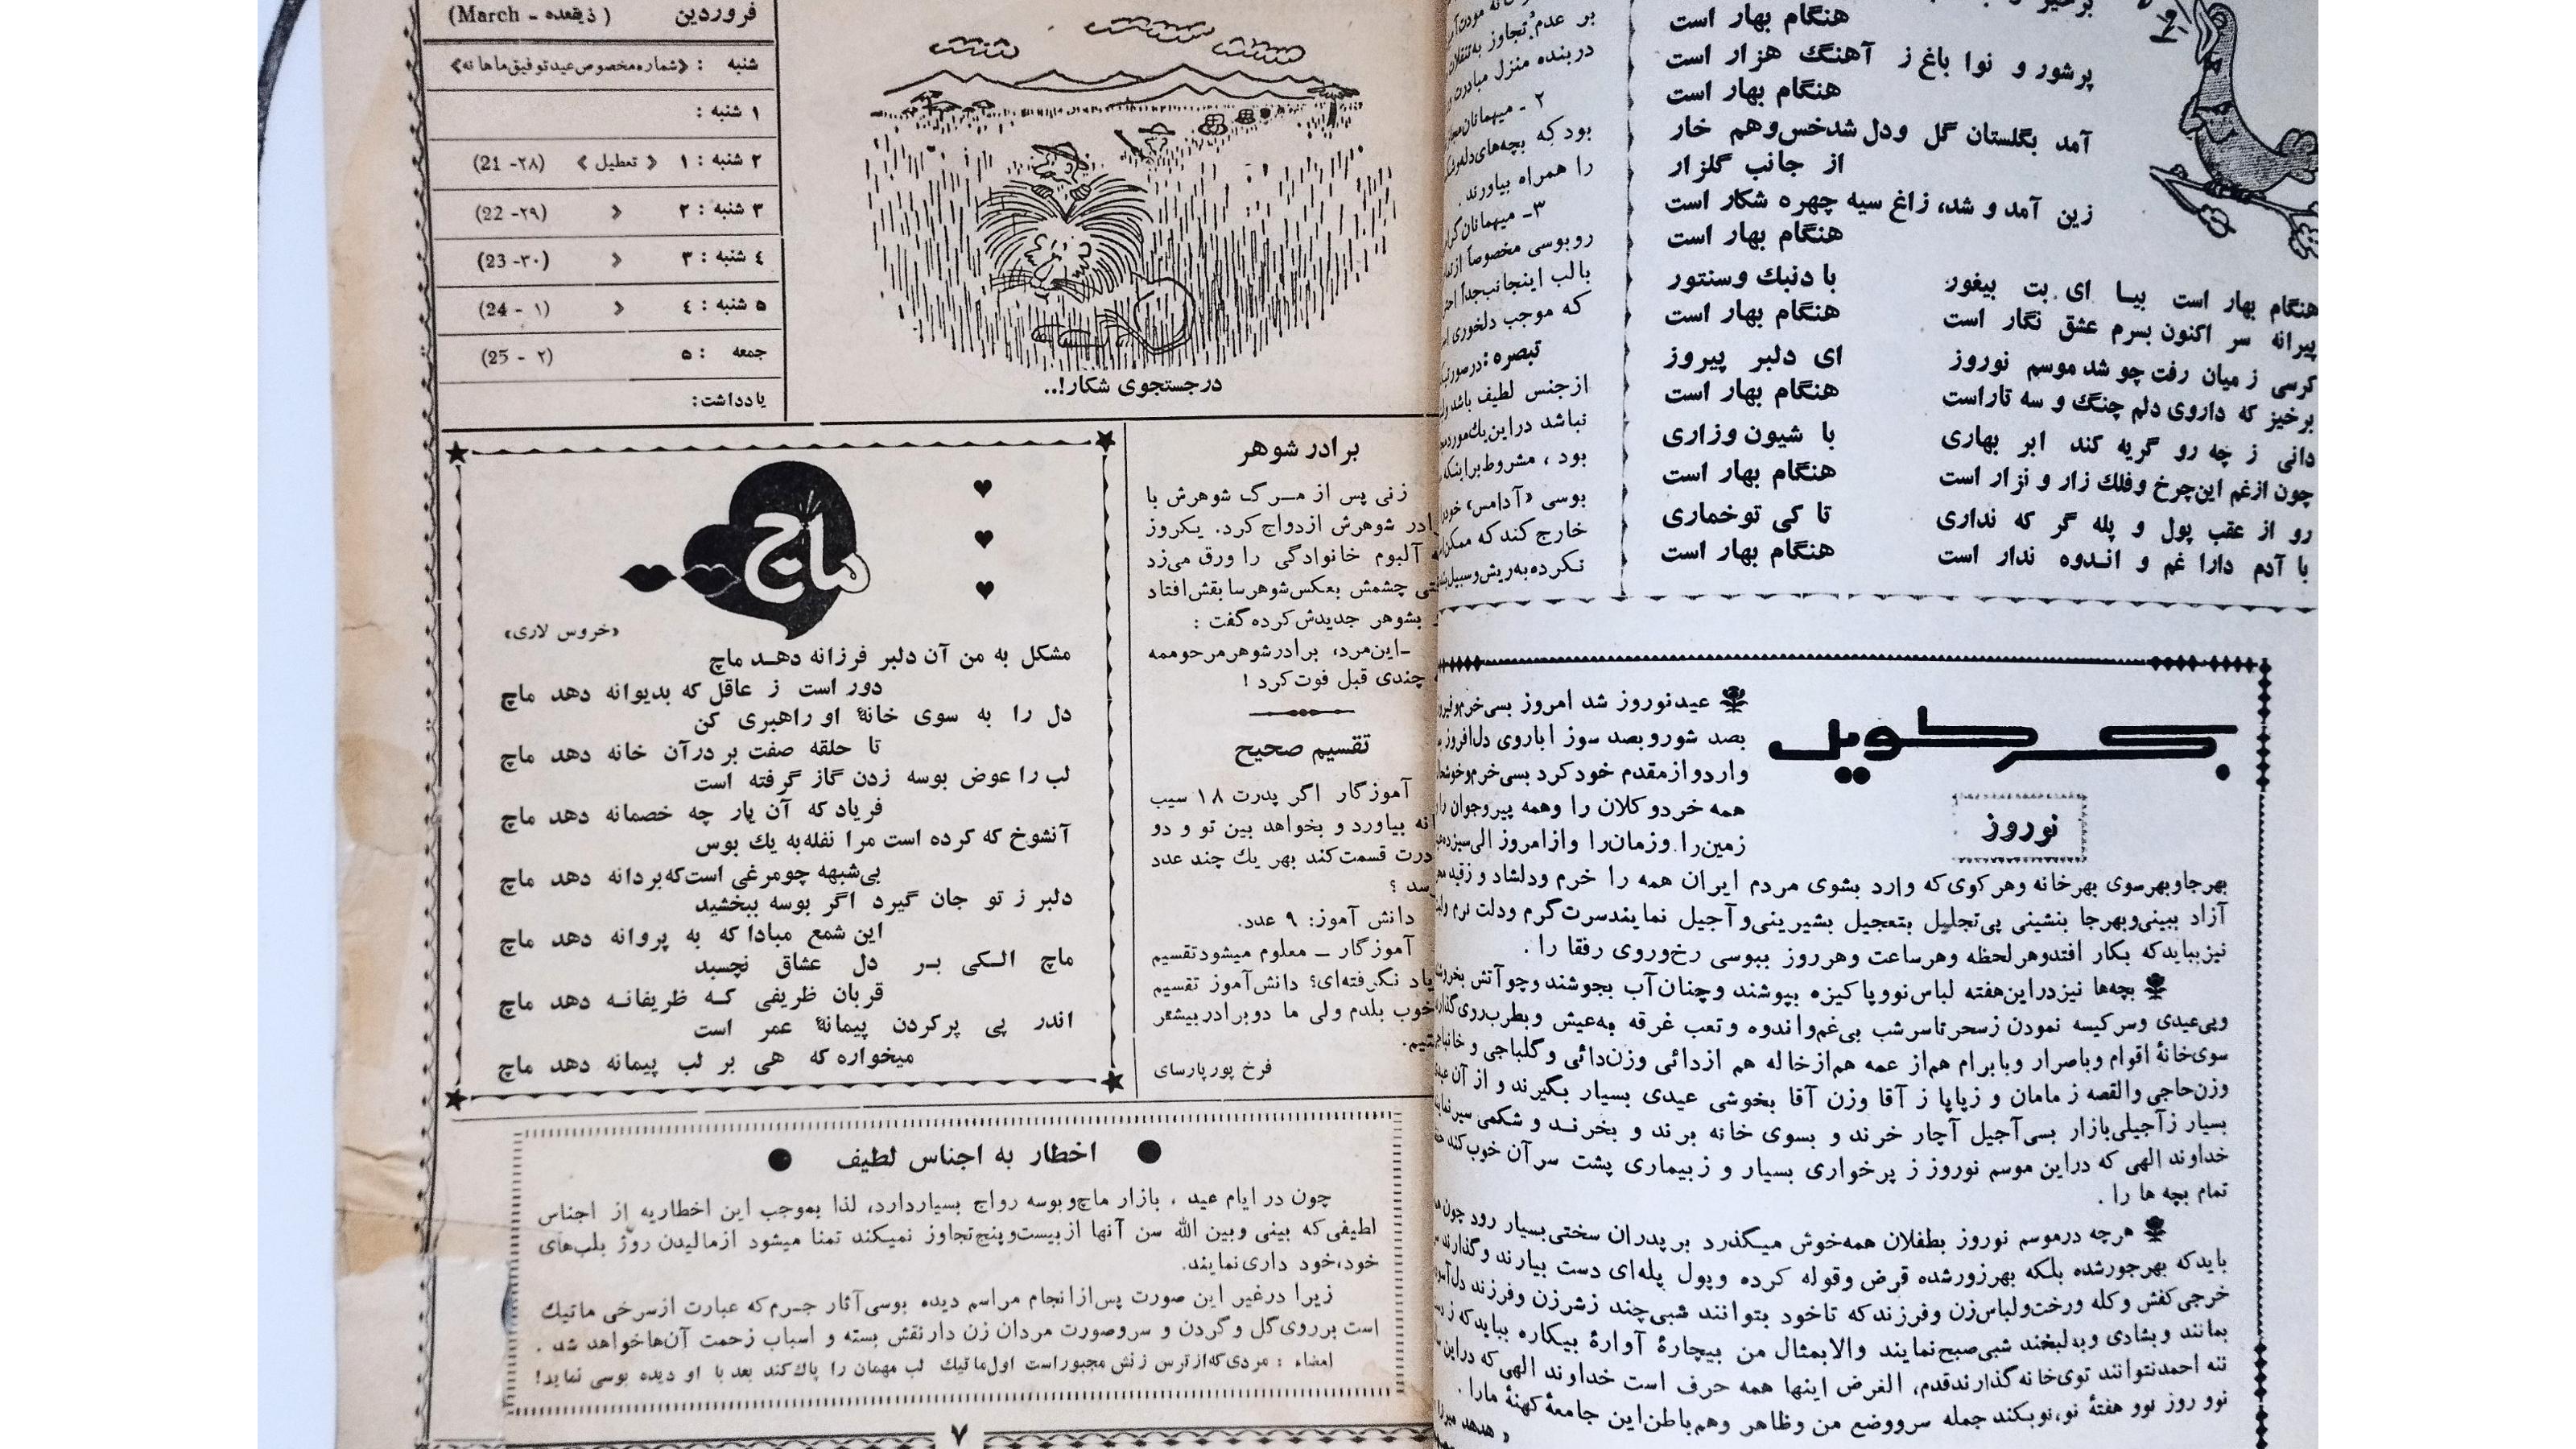 برخیز
هنگام بهار است
پرشور و نوا باغ ز آهنگ هزار است
هنگام بهار است
آمد بگلستان گل ودل شدخس‌وهم خار
از جانب گلزار
زین آمد و شد، زاغ سیه چهره شکار است
هنگام بهار است
هنگام بهار است بیا ای بت بیغور
با دنبك وسنتور
پیرانه سر اکنون بسرم عشق نگار است
هنگام بهار است
کرسی ز میان رفت چو شد موسم نوروز
ای دلبر پیروز
برخیز که داروی دلم چنگ و سه تاراست
هنگام بهار است
دانی ز چه رو گریه کند ابر بهاری
با شیون وزاری
چون ازغم این‌چرخ وفلك زار و نزار است
هنگام بهار است
رو از عقب پول و پله گر که نداری
تا کی توخماری
با آدم دارا غم و اندوه ندار است
هنگام بهار است
بر عدم تجاوز به
دربنده منزل مبادرت
۲ ـ میهمانان
بود که بچه‌های
را همراه بیاورند.
۳ـ میهمانان
روبوسی مخصوصاً از
بالب اینجانب‌جداً
که موجب دلخوری
تبصره: درصورتیکه
ازجنس لطیف باشد
نباشد دراین‌یك‌مورد
بود ، مشروط‌براینکه
بوسی «آدامس» خود
خارج کند که ممکن
نکرده به‌ریش‌وسبیل
بحرطویل
نوروز
عیدنوروز شد امروز بسی‌خرم‌و
بصد شوروبصد سوز اباروی دل‌افروز
واردواز‌مقدم خودکرد بسی‌خرم‌و
همه خردوکلان را وهمه پیروجوان را
زمین‌را وزمان‌را وازامروز الی‌سیزده
بهرجاوبهرسوی بهرخانه وهرکوی‌که وارد بشوی مردم ایران همه را خرم ودلشاد و زقید
آزاد ببینی‌وبهرجا بنشینی پی‌تجلیل بتعجیل بشیرینی‌وآجیل نمایندسرت‌گرم ودلت نرم
نیزبباید‌که بکار افتدوهرلحظه وهرساعت وهرروز ببوسی رخ‌وروی رفقا را .
بچه‌ها نیز‌دراین‌هفته لباس‌نووپاکیزه بپوشند وچنان‌آب بجوشند وچوآتش
وپی‌عیدی وسرکیسه نمودن زسحرتاسرشب بی‌غم‌واندوه وتعب غرقه به‌عیش وبطرب‌روی
سوی‌خانهٔ اقوام وباصرار وبابرام هم‌از عمه هم‌ازخاله هم ازدائی وزن‌دائی وگلباجی و
وزن‌حاجی والقصه ز مامان و زپاپا ز آقا وزن آقا بخوشی عیدی بسیار بگیرند و از آن
بسیار زآجیلی‌بازار بسی‌آجیل آچار خرند و بسوی خانه برند و بخرند و شکمی سیر
خداوند الهی که دراین موسم نوروز ز پرخواری بسیار و زبیماری پشت سرآن خوب‌کند
تمام بچه ها را .
هرچه درموسم نوروز بطفلان همه‌خوش میگذرد برپدران سختی‌بسیار رود چون
بایدکه بهرجورشده بلکه بهرزورشده قرض وقوله کرده وپول پله‌ای دست بیارند وگذارند
خرجی‌کفش وکله ورخت‌ولباس‌زن وفرزندکه تاخود بتوانند شبی‌چند زشرزن وفرزند
بمانند وبشادی وبه‌لبخند شبی‌صبح‌نمایند والابمثال من بیچارهٔ آوارهٔ بیکاره ببایدکه ز
ننه احمدنتوانند توی‌خانه گذارندقدم، الغرض اینها همه حرف است خداوند الهی‌که دراین
نوو روز نوو هفتهٔ نو،نوبکند جمله سرووضع من وظاهر وهم‌باطن‌این جامعهٔ کهنهٔ مارا .
« هدهد میرزا
فروردین (ذیقعده ـ March)
شنبه : «شماره‌مخصوص‌عیدتوفیق‌ماهانه»
۱ شنبه :
۲ شنبه : ۱ « تعطیل » (۲۸- 21)
۳ شنبه : ۲ » (۲۹- 22)
٤ شنبه : ۳ » (۳۰- 23)
۵ شنبه : ٤ » (۱ - 24)
جمعه : ۵ (۲ - 25)
یادداشت:
درجستجوی شکار!..
برادرشوهر
زنی پس از مـرگ شوهرش با
ادر شوهرش ازدواج‌کرد. یکروز
آلبوم خانوادگی را ورق می‌زد
چشمش بعکس‌شوهرسابقش‌افتاد
بشوهر جدیدش‌کرده‌گفت :
ـ‌این‌مرد، برادرشوهرمرحوممه
چندی قبل فوت‌کرد !
تقسیم صحیح
آموزگار اگر پدرت ۱۸ سیب
انه بیاورد و بخواهد بین تو و دو
درت قسمت‌کند بهر یك چند عدد
رسد ؟
دانش آموز: ۹ عدد.
آموزگار ــ معلوم میشودتقسیم
یاد نگرفته‌ای؟ دانش‌آموز تقسیم
خوب بلدم ولی ما دوبرادربیشتر
نیستیم.
فرخ پورپارسای
ماچ
«خروس لاری»
مشکل به من آن دلبر فرزانه دهـد ماچ
دور است ز عاقل که بدیوانه دهد ماچ
دل را به سوی خانهٔ او راهبری کن
تا حلقه صفت بر درآن خانه دهد ماچ
لب را عوض بوسه زدن گاز گرفته است
فریاد که آن یار چه خصمانه دهد ماچ
آنشوخ که کرده است مرا نفله‌به یك بوس
بی‌شبهه چومرغی است‌که‌بردانه دهد ماچ
دلبر ز تو جان گیرد اگر بوسه ببخشید
این شمع مبادا که به پروانه دهد ماچ
ماچ الـکی بـر دل عشاق نچسبد
قربان ظریفی کـه ظریفانـه دهد ماچ
اندر پی پرکردن پیمانهٔ عمر است
میخواره که هی بر لب پیمانه دهد ماچ
● اخطار به اجناس لطیف ●
چون در ایام عید ، بازار ماچ‌وبوسه رواج بسیاردارد، لذا بموجب این اخطاریه از اجناس
لطیفی‌که بینی وبین الله سن آنها ازبیست‌وپنج‌تجاوز نمیکند تمنا میشود ازمالیدن روژ بلب‌های
خود،خود داری‌نمایند.
زیرا درغیر این صورت پس‌ازانجام مراسم دیده بوسی‌آثار جـرم‌که عبارت ازسرخی ماتیك
است برروی‌گل وگردن و سروصورت مردان زن دارنقش بسته و اسباب زحمت آن‌هاخواهد شد .
امضاء : مردی‌که‌ازترس زنش مجبوراست اول‌ماتیك لب مهمان را پاك‌کند بعد با او دیده بوسی نماید!
۷